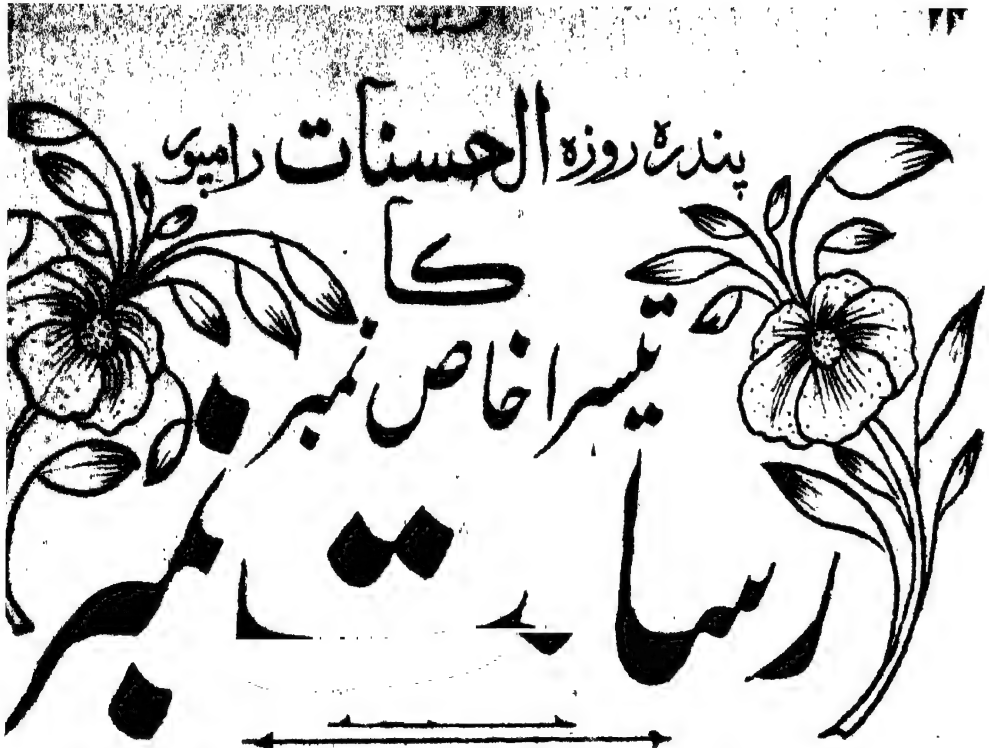 پندرہ روزہ الحسنات رامپور
کا
تیسرا خاص نمبر
رسالت نمبر